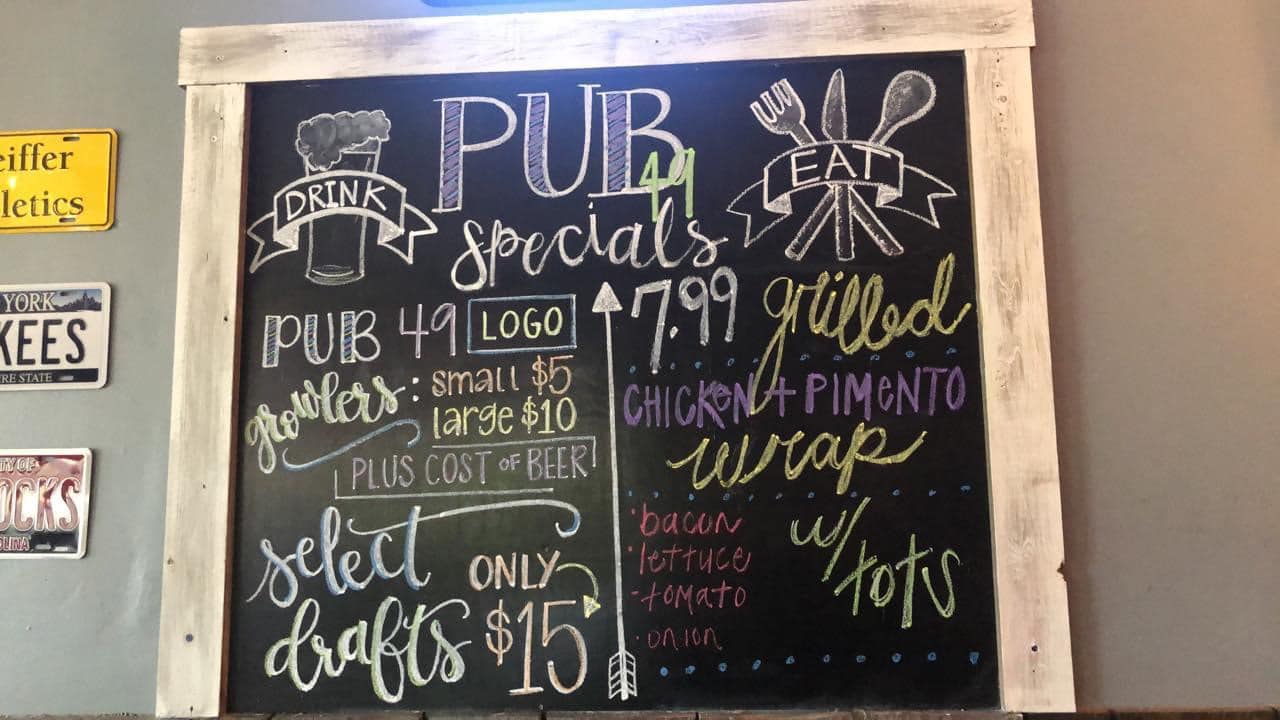 eiffer
letics
YORK
KEES
RE STATE
TY OF
OCKS
LINA
PUB
49
specials
DRINK
EAT
PUB 49 LOGO
growlers: small $5
large $10
PLUS COST OF BEER
select
drafts
ONLY
$15
7.99 grilled
CHICKEN + PIMENTO
wrap
·bacon
·lettuce
-tomato
·onion
w/
tots